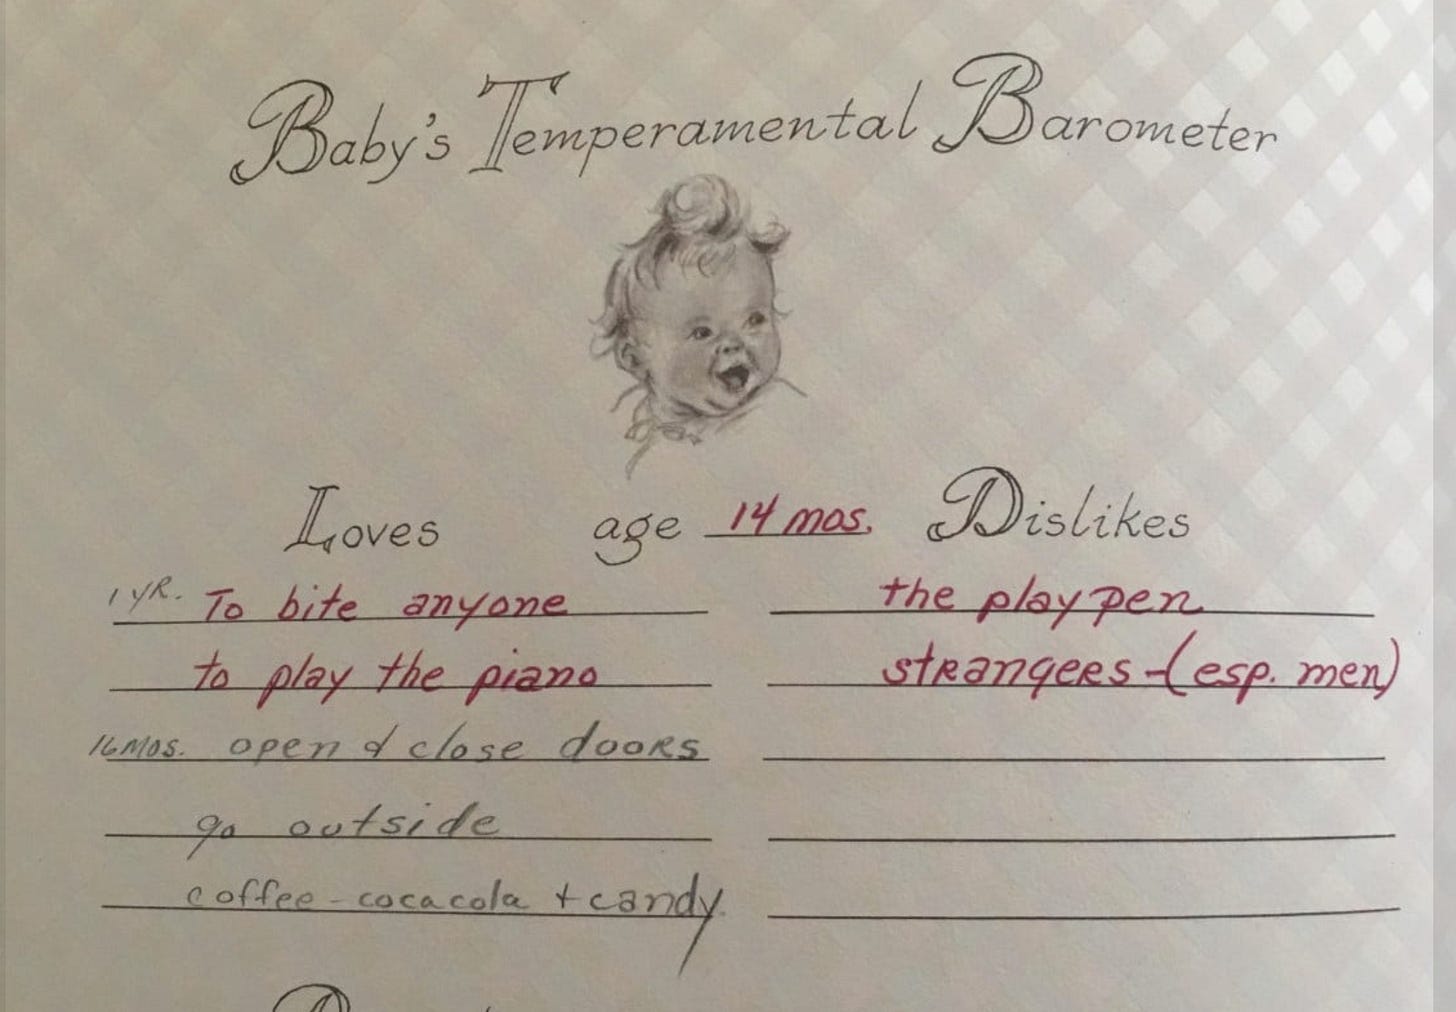 Baby's Temperamental Barometer
Loves age 14 mos. Dislikes
1 YR. To bite anyone
the play pen
to play the piano
strangers - (esp. men)
16 MOS. open & close doors
go outside
coffee - coca cola + candy